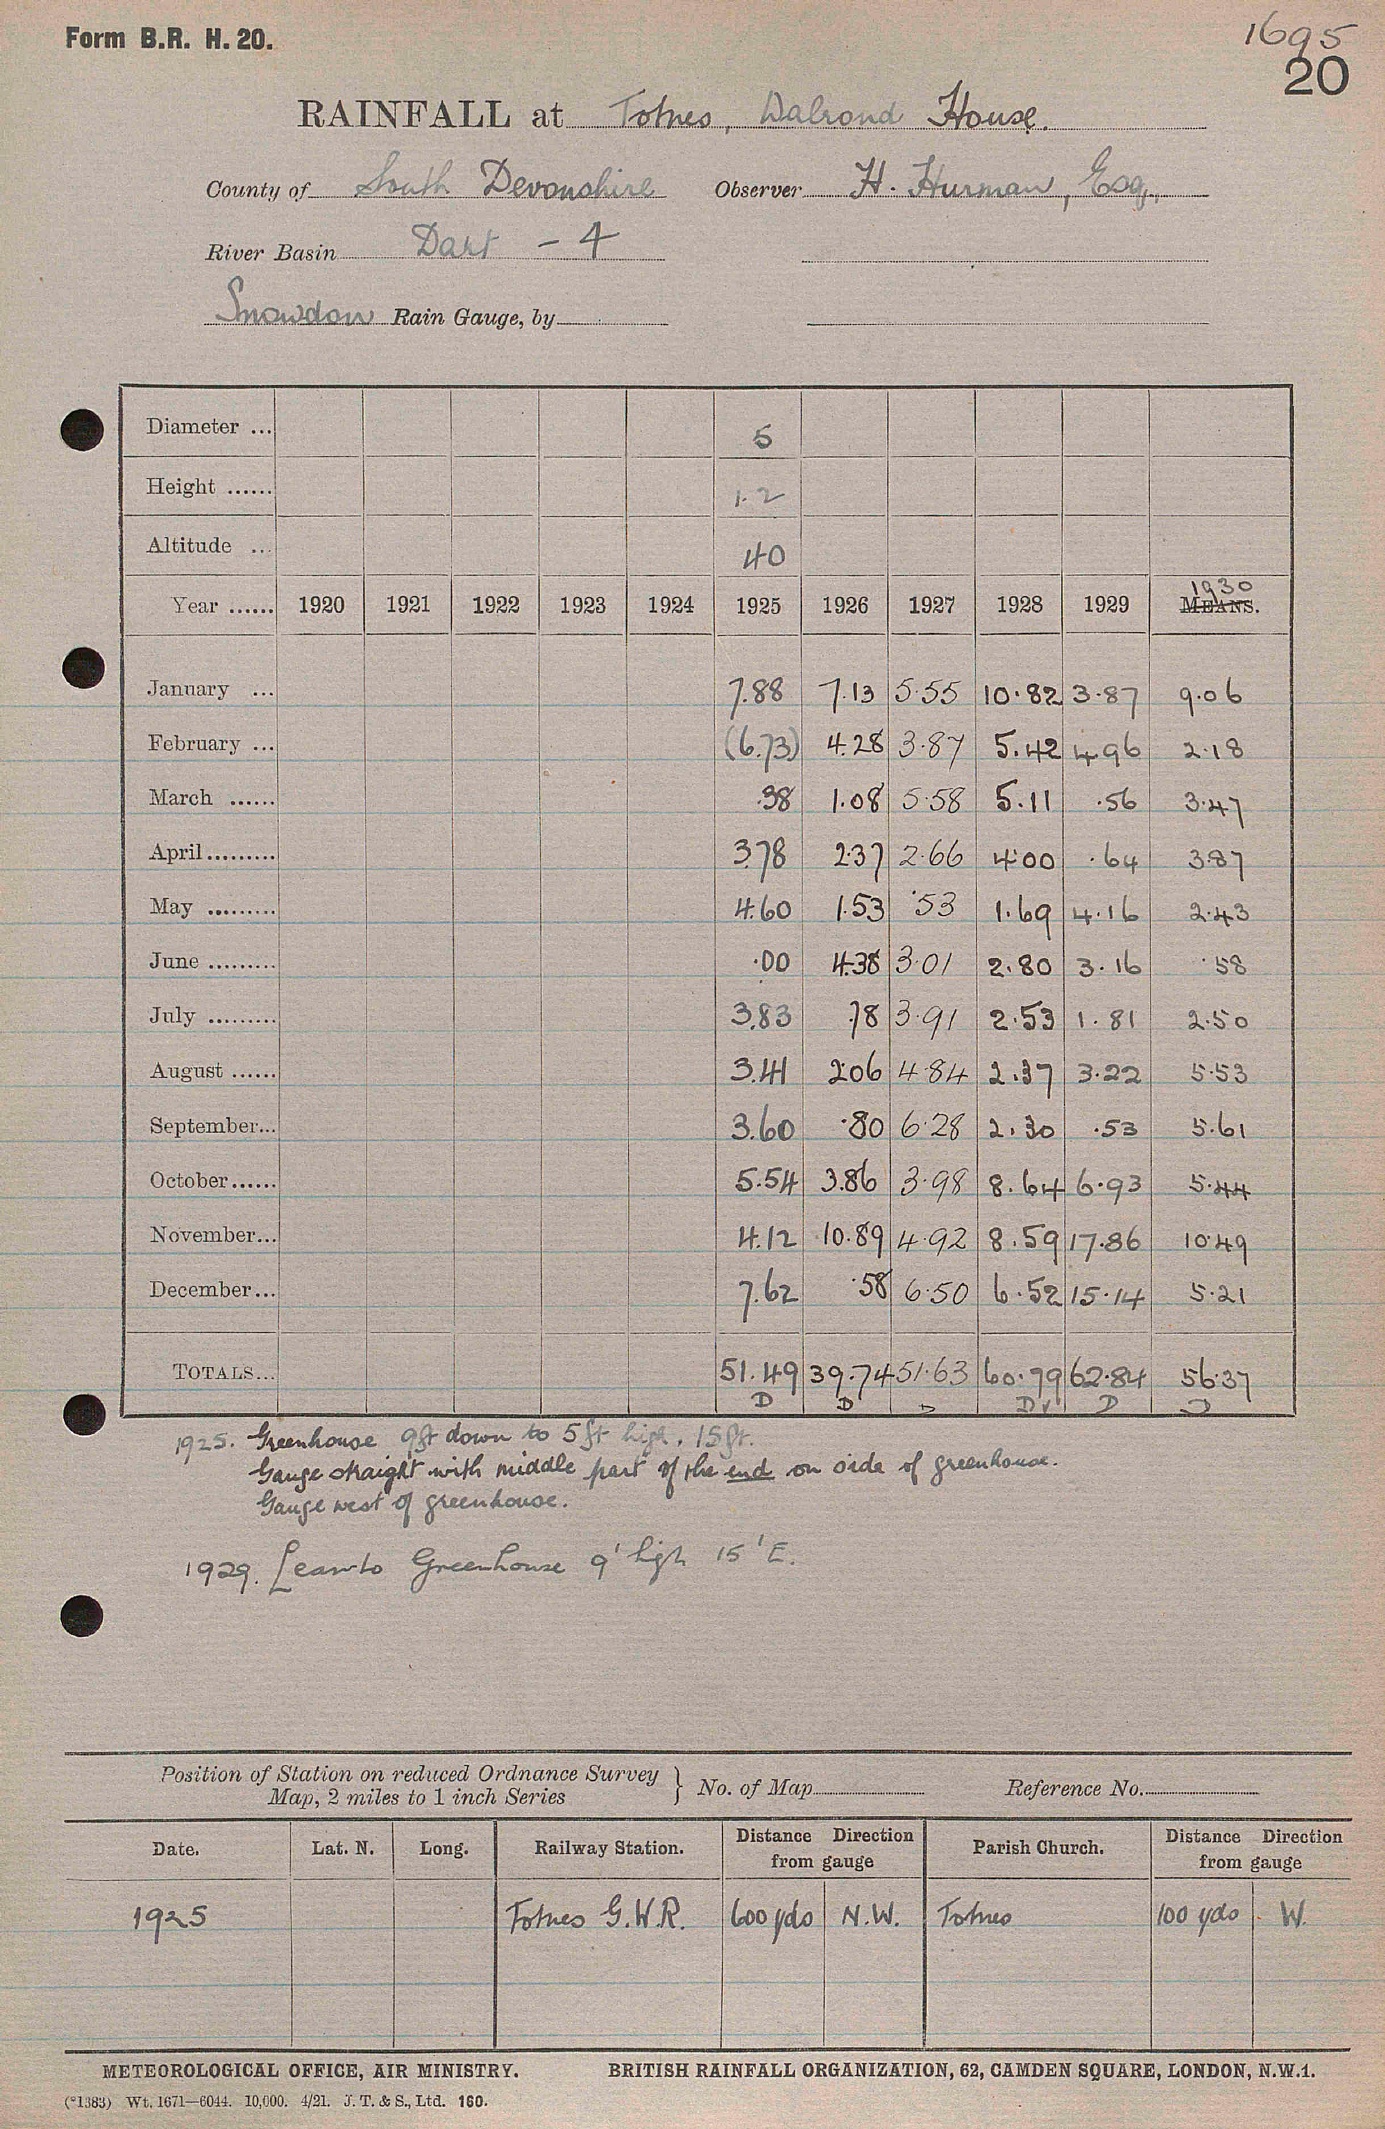 Form B.R. H. 20.
1695
20
RAINFALL at Totnes, Walrond House.
County of South Devonshire Observer H. Hurman, Esq.
River Basin Dart - 4
Snowdon Rain Gauge, by
Diameter ... 5
Height ...... 1.2
Altitude ... 40
1930
Year ...... 1920 1921 1922 1923 1924 1925 1926 1927 1928 1929 MEANS.
January ... 7.88 7.13 5.55 10.82 3.87 9.06
February ... (6.73) 4.28 3.87 5.42 4.96 2.18
March ...... .38 1.08 5.58 5.11 .56 3.47
April ......... 3.78 2.37 2.66 4.00 .64 3.87
May ......... 4.60 1.53 .53 1.69 4.16 2.43
June ......... .00 4.38 3.01 2.80 3.16 .58
July ......... 3.83 .78 3.91 2.53 1.81 2.50
August ...... 3.41 2.06 4.84 2.37 3.22 5.53
September... 3.60 .80 6.28 2.30 .53 5.61
October...... 5.54 3.86 3.98 8.64 6.93 5.44
November... 4.12 10.89 4.92 8.59 17.86 10.49
December... 7.62 .58 6.50 6.52 15.14 5.21
TOTALS... 51.49 39.74 51.63 60.79 62.84 56.37
D D D D D
1925. Greenhouse 9ft down to 5 ft high, 15 ft.
Gauge straight with middle part of the end on side of greenhouse.
Gauge west of greenhouse.
1929. Leanto Greenhouse 9' high 15' E.
Position of Station on reduced Ordnance Survey
Map, 2 miles to 1 inch Series } No. of Map Reference No.
Date. Lat. N. Long. Railway Station. Distance Direction from gauge Parish Church. Distance Direction from gauge
1925 Totnes G.W.R. 600 yds N.W. Totnes 100 yds W.
METEOROLOGICAL OFFICE, AIR MINISTRY. BRITISH RAINFALL ORGANIZATION, 62, CAMDEN SQUARE, LONDON, N.W.1.
(*1383) Wt. 1671—6044. 10,000. 4/21. J. T. & S., Ltd. 160.